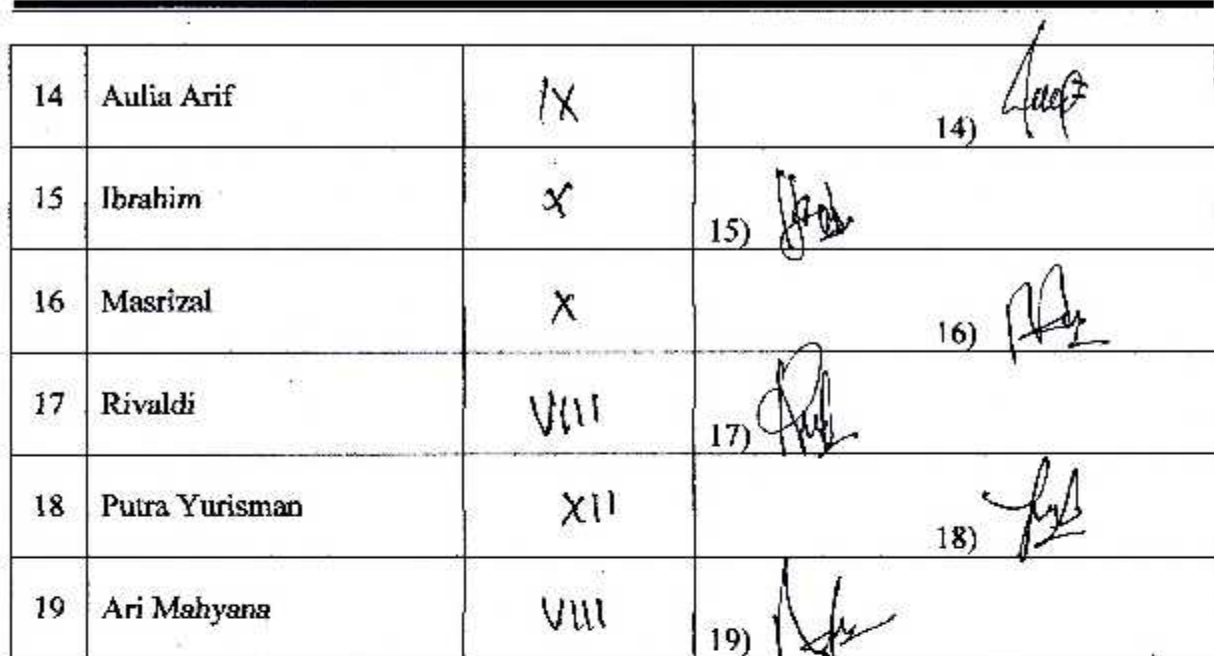 14 Aulia Arif IX 14)
15 Ibrahim X 15)
16 Masrizal X 16)
17 Rivaldi VIII 17)
18 Putra Yurisman XII 18)
19 Ari Mahyana VIII 19)